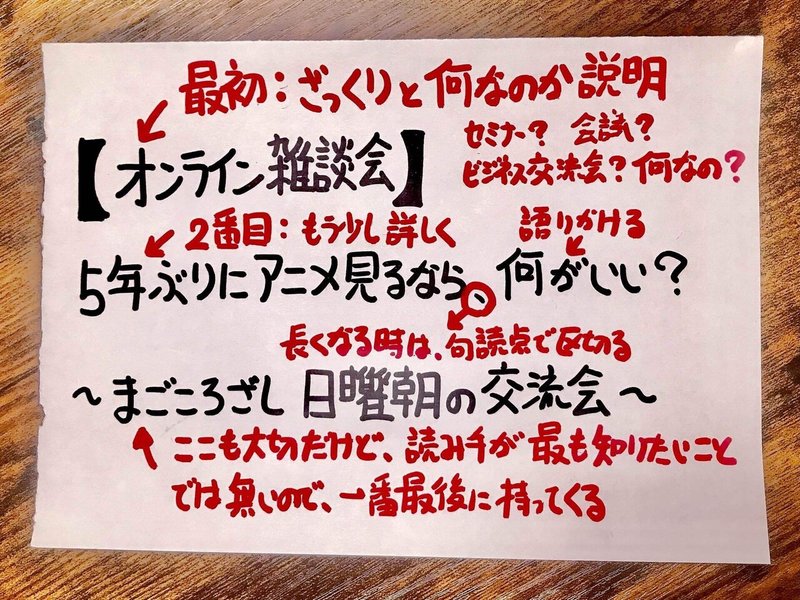 最初：ざっくりと何なのか説明
【オンライン雑談会】
セミナー？ 会議？
ビジネス交流会？何なの？
2番目：もう少し詳しく
語りかける
5年ぶりにアニメ見るなら、何がいい？
長くなる時は、句読点で区切る
〜まごころざし 日曜朝の交流会〜
ここも大切だけど、読み手が最も知りたいこと
では無いので、一番最後に持ってくる